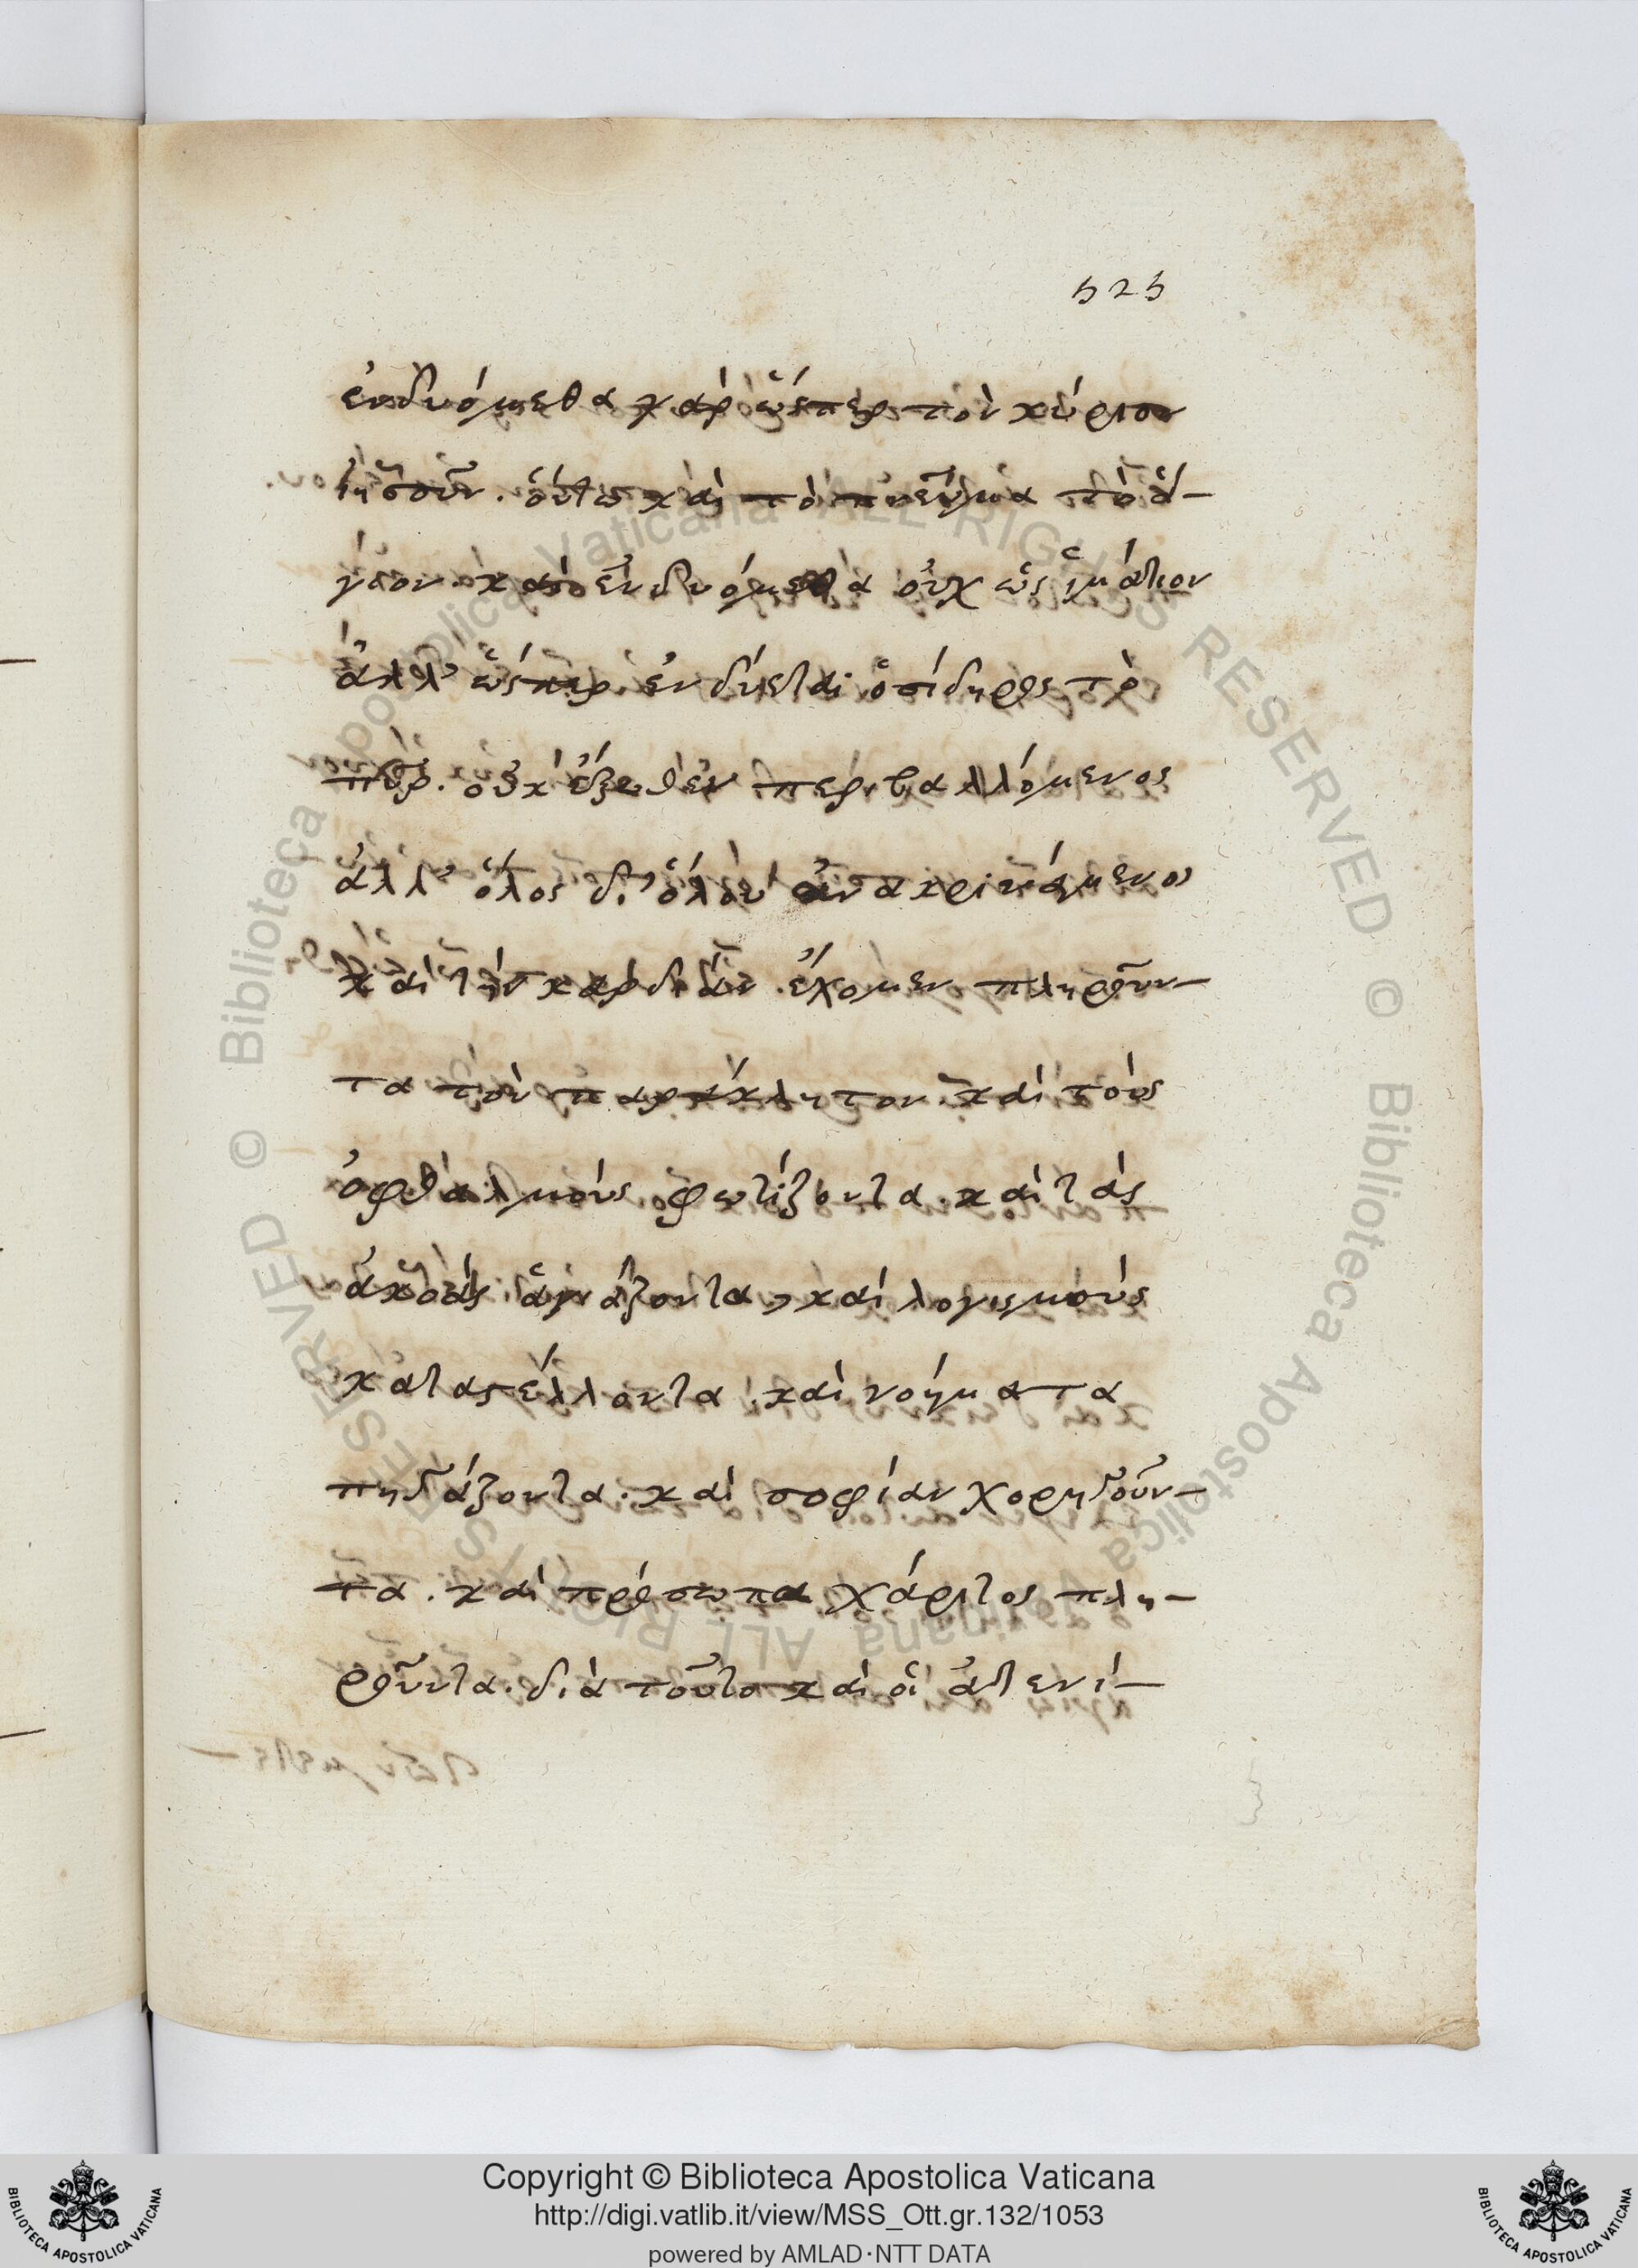 525
ἐνδυόμεθα γὰρ ὥσπερ τὸν κύριον
ἰησοῦν. οὕτω καὶ τὸ πνεῦμα τὸ ἅ-
γιον. καὶ ἐνδυόμεθα οὐχ ὡς ἱμάτιον
ἀλλ' ὥσπερ ἐνδύεται ὁ σίδηρος τὸ
πῦρ. οὐκ ἔξωθεν περιβαλλόμενος
ἀλλ' ὅλος δι' ὅλου ἀνακρινάμενος
καὶ τὴν καρδίαν ἔχομεν πληροῦν-
τα τὸν παράκλητον. καὶ τοὺς
ὀφθαλμοὺς φωτίζοντα. καὶ τὰς
ἀκοὰς ἁγιάζοντα, καὶ λογισμοὺς
καταστέλλοντα. καὶ νοήματα
πηγάζοντα. καὶ σοφίαν χορηγοῦν-
τα. καὶ πρόσωπα χάριτος πλη-
ροῦντα. διὰ τοῦτο καὶ οἱ ἀτενί-
© Biblioteca Apostolica Vaticana ALL RIGHTS RESERVED
© Biblioteca Apostolica Vaticana ALL RIGHTS RESERVED
Copyright © Biblioteca Apostolica Vaticana
http://digi.vatlib.it/view/MSS_Ott.gr.132/1053
powered by AMLAD·NTT DATA
BIBLIOTECA APOSTOLICA VATICANA
BIBLIOTECA APOSTOLICA VATICANA